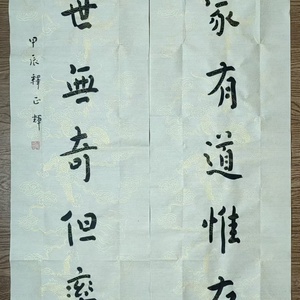 家有道惟
世無奇但率
甲辰釋正輝